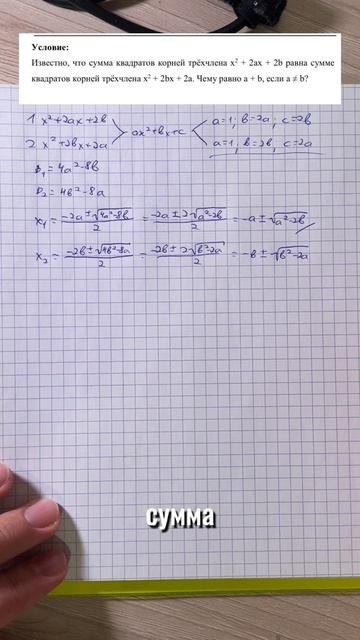 Условие:
Известно, что сумма квадратов корней трёхчлена x² + 2ax + 2b равна сумме
квадратов корней трёхчлена x² + 2bx + 2a. Чему равно a + b, если a ≠ b?
1. x²+2ax+2b
ax²+bx+c
a=1; b=2a; c=2b
2. x²+2bx+2a
a=1; b=2b; c=2a
D₁ = 4a²-8b
D₂ = 4b²-8a
x₁ = (-2a±√(4a²-8b))/2 = (-2a±2√(a²-2b))/2 = -a±√(a²-2b)
x₂ = (-2b±√(4b²-8a))/2 = (-2b±2√(b²-2a))/2 = -b±√(b²-2a)
сумма